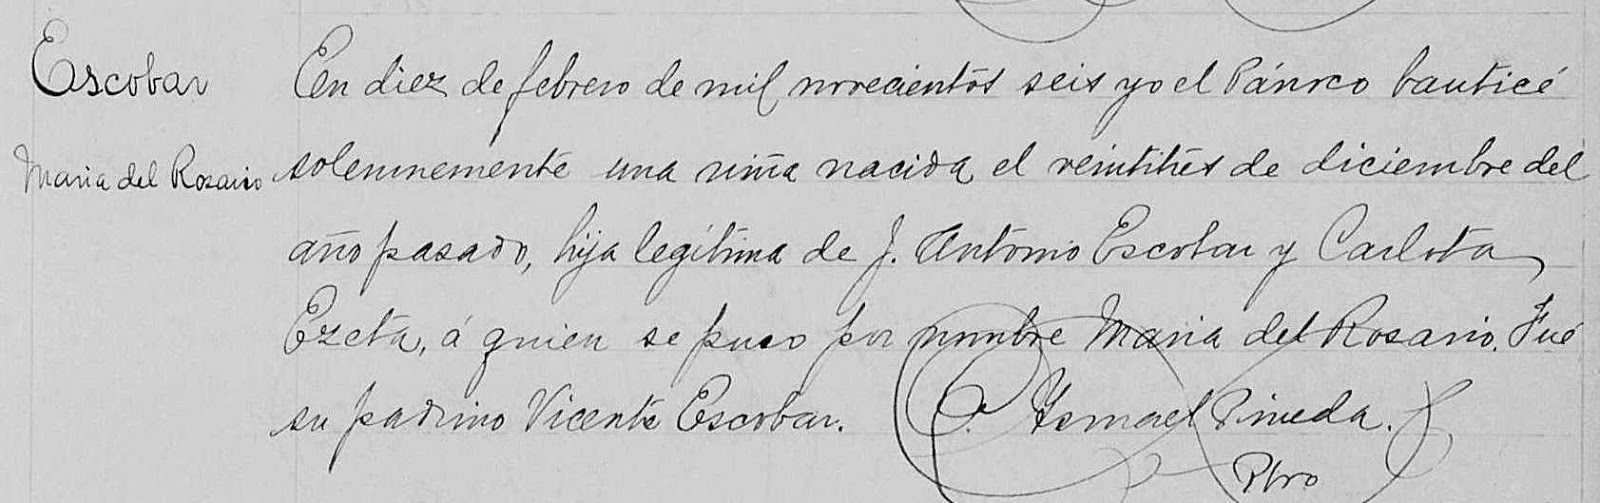 Escobar
Maria del Rosario
En diez de febrero de mil novecientos seis yo el Párroco bauticé
solemnemente una niña nacida el veintitrés de diciembre del
año pasado, hija legítima de J. Antonio Escobar y Carlota
Ezeta, á quien se puso por nombre Maria del Rosario. Fué
su padrino Vicente Escobar. C. Ysmael Pineda.
Pbro